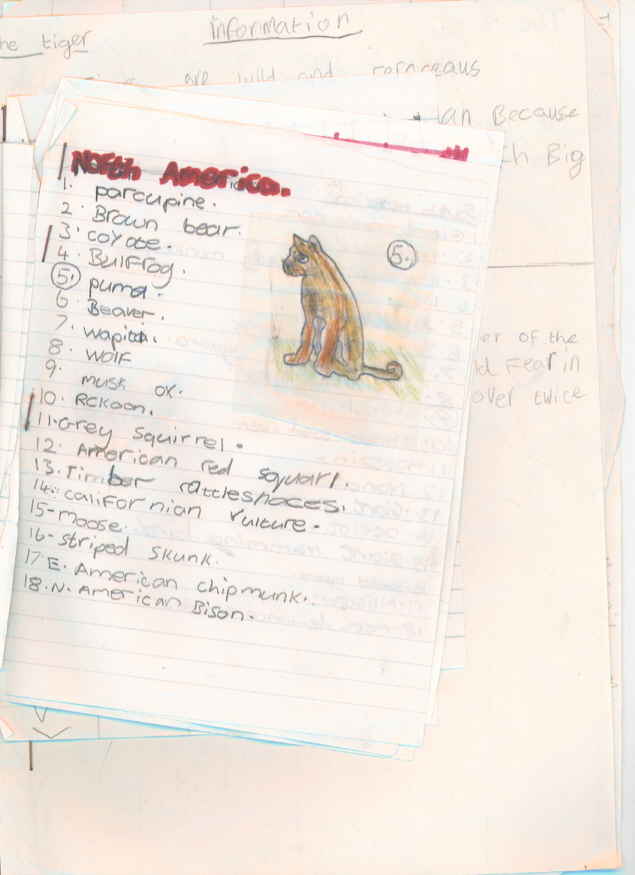 the tiger information
are wild and
Because
Big
of the
Fear in
over twice
North America.
1. parcupine.
2. Brown bear.
3. coyote.
4. Bulfrog.
5. puma.
6. Beaver.
7. wapiti.
8. wolf
9. musk ox.
10. Rckoon.
11. Grey squirrel.
12. American red squarl.
13. Timber rattlesnaces.
14. californian vulture.
15-moose.
16-striped skunk.
17 E. American chipmunk.
18. N. American Bison.
5.